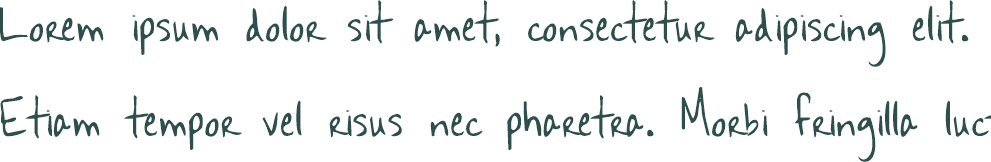 Lorem ipsum dolor sit amet, consectetur adipiscing elit.
Etiam tempor vel risus nec pharetra. Morbi fringilla luc